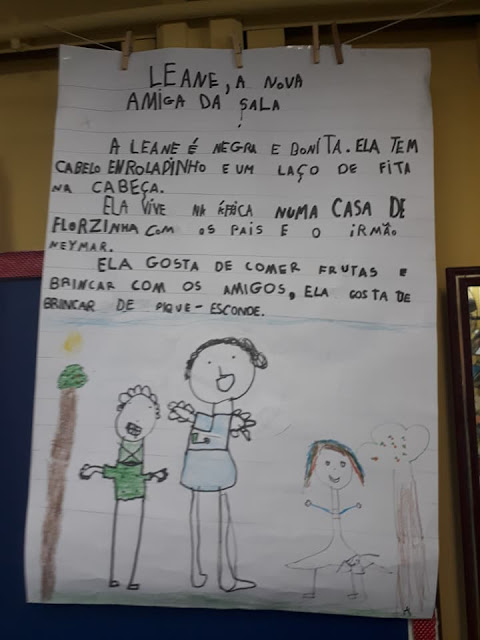 LEANE, A NOVA
AMIGA DA SALA
A LEANE É NEGRA E BONITA. ELA TEM
CABELO ENROLADINHO E UM LAÇO DE FITA
NA CABEÇA.
ELA VIVE NA ÁFRICA NUMA CASA DE
FLORZINHA COM OS PAIS E O IRMÃO
NEYMAR.
ELA GOSTA DE COMER FRUTAS E
BRINCAR COM OS AMIGOS, ELA GOSTA DE
BRINCAR DE PIQUE-ESCONDE.